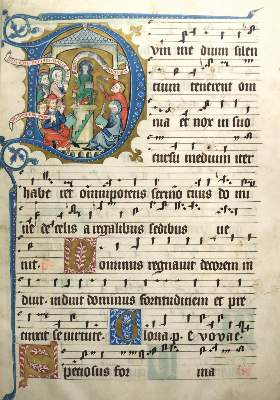 Dum me dium silen
tium tenerent om
nia et nox in suo
cursu medium iter
habe ret omnipotens sermo tuus do mi
ne de celis a regalibus sedibus ve
nit. ps Dominus regnavit decorem in
duit induit dominus fortitudinem et pre
cinxit se virtute. Gloria. p. E vovae.
Speciosus for ma